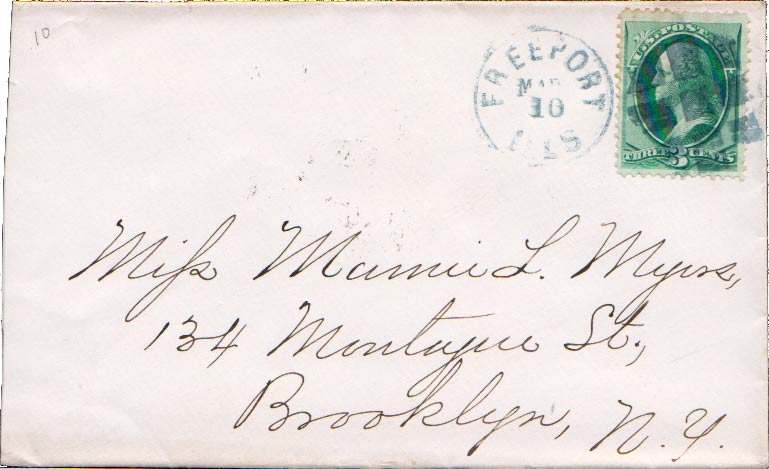 10
FREEPORT
MAR
10
ILLS
U.S. POSTAGE
THREE 3 CENTS
Miss Mamie L. Myers,
134 Montague St.,
Brooklyn, N.Y.